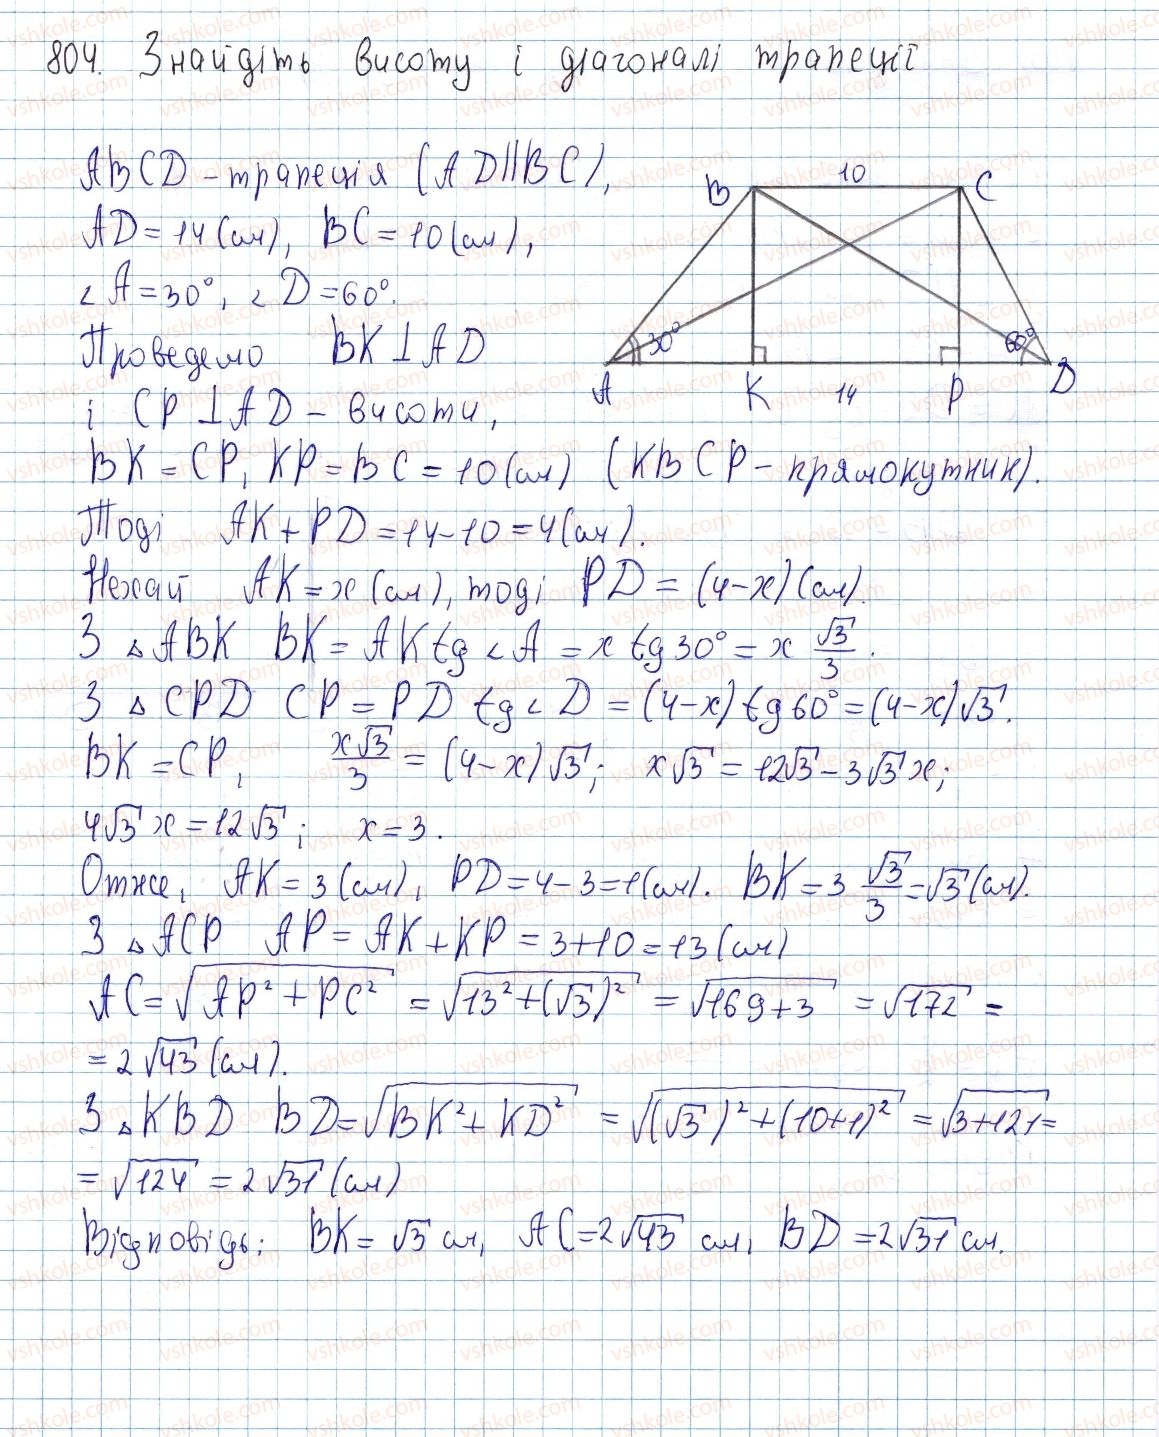 804. Знайдіть висоту і діагоналі трапеції
ABCD - трапеція (AD||BC),
AD = 14 (см), BC = 10 (см),
∠A = 30°, ∠D = 60°.
Проведемо BK ⊥ AD
і CP ⊥ AD - висоти,
BK = CP, KP = BC = 10 (см) (KBCP - прямокутник).
Тоді AK + PD = 14 - 10 = 4 (см).
Нехай AK = x (см), тоді PD = (4-x) (см).
З △ABK BK = AK tg ∠A = x tg 30° = x √3/3.
З △CPD CP = PD tg ∠D = (4-x) tg 60° = (4-x)√3.
BK = CP, x√3/3 = (4-x)√3; x√3 = 12√3 - 3√3x;
4√3x = 12√3; x = 3.
Отже, AK = 3 (см), PD = 4 - 3 = 1 (см). BK = 3 √3/3 = √3 (см).
З △ACP AP = AK + KP = 3 + 10 = 13 (см)
AC = √(AP² + PC²) = √(13² + (√3)²) = √(169 + 3) = √172 =
= 2√43 (см).
З △KBD BD = √(BK² + KD²) = √((√3)² + (10+1)²) = √(3+121) =
= √124 = 2√31 (см)
Відповідь: BK = √3 см, AC = 2√43 см, BD = 2√31 см.
B 10 C
30° 60°
A K 14 P D
vshkole.com